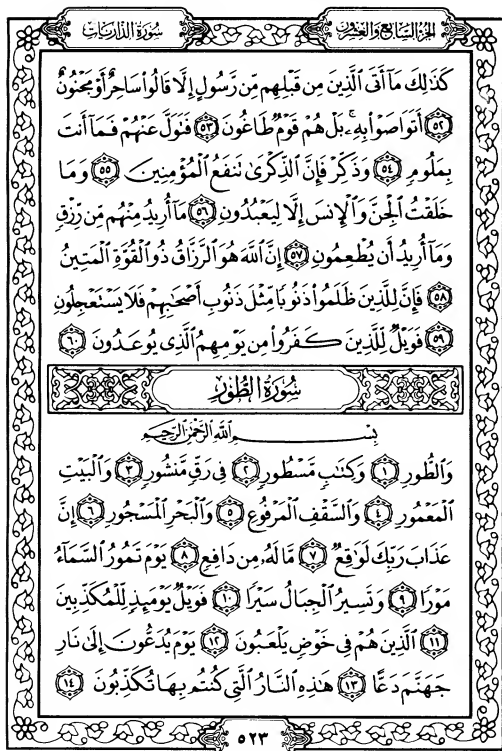 الجزء السابع والعشرون
سورة الذاريات
كَذَٰلِكَ مَآ أَتَى الَّذِينَ مِن قَبْلِهِم مِّن رَّسُولٍ إِلَّا قَالُوا۟ سَاحِرٌ أَوْ مَجْنُونٌ
٥٢ أَتَوَاصَوْا۟ بِهِۦۚ بَلْ هُمْ قَوْمٌ طَاغُونَ ٥٣ فَتَوَلَّ عَنْهُمْ فَمَآ أَنتَ
بِمَلُومٍ ٥٤ وَذَكِّرْ فَإِنَّ الذِّكْرَىٰ تَنفَعُ الْمُؤْمِنِينَ ٥٥ وَمَا
خَلَقْتُ الْجِنَّ وَالْإِنسَ إِلَّا لِيَعْبُدُونِ ٥٦ مَآ أُرِيدُ مِنْهُم مِّن رِّزْقٍ
وَمَآ أُرِيدُ أَن يُطْعِمُونِ ٥٧ إِنَّ اللَّهَ هُوَ الرَّزَّاقُ ذُو الْقُوَّةِ الْمَتِينُ
٥٨ فَإِنَّ لِلَّذِينَ ظَلَمُوا۟ ذَنُوبًا مِّثْلَ ذَنُوبِ أَصْحَٰبِهِمْ فَلَا يَسْتَعْجِلُونِ
٥٩ فَوَيْلٌ لِّلَّذِينَ كَفَرُوا۟ مِن يَوْمِهِمُ الَّذِى يُوعَدُونَ ٦٠
سورة الطور
بِسْمِ اللَّهِ الرَّحْمَٰنِ الرَّحِيمِ
وَالطُّورِ ١ وَكِتَٰبٍ مَّسْطُورٍ ٢ فِى رَقٍّ مَّنشُورٍ ٣ وَالْبَيْتِ
الْمَعْمُورِ ٤ وَالسَّقْفِ الْمَرْفُوعِ ٥ وَالْبَحْرِ الْمَسْجُورِ ٦ إِنَّ
عَذَابَ رَبِّكَ لَوَٰقِعٌ ٧ مَّا لَهُۥ مِن دَافِعٍ ٨ يَوْمَ تَمُورُ السَّمَآءُ
مَوْرًا ٩ وَتَسِيرُ الْجِبَالُ سَيْرًا ١٠ فَوَيْلٌ يَوْمَئِذٍ لِّلْمُكَذِّبِينَ
١١ الَّذِينَ هُمْ فِى خَوْضٍ يَلْعَبُونَ ١٢ يَوْمَ يُدَعُّونَ إِلَىٰ نَارِ
جَهَنَّمَ دَعًّا ١٣ هَٰذِهِ النَّارُ الَّتِى كُنتُم بِهَا تُكَذِّبُونَ ١٤
٥٢٣